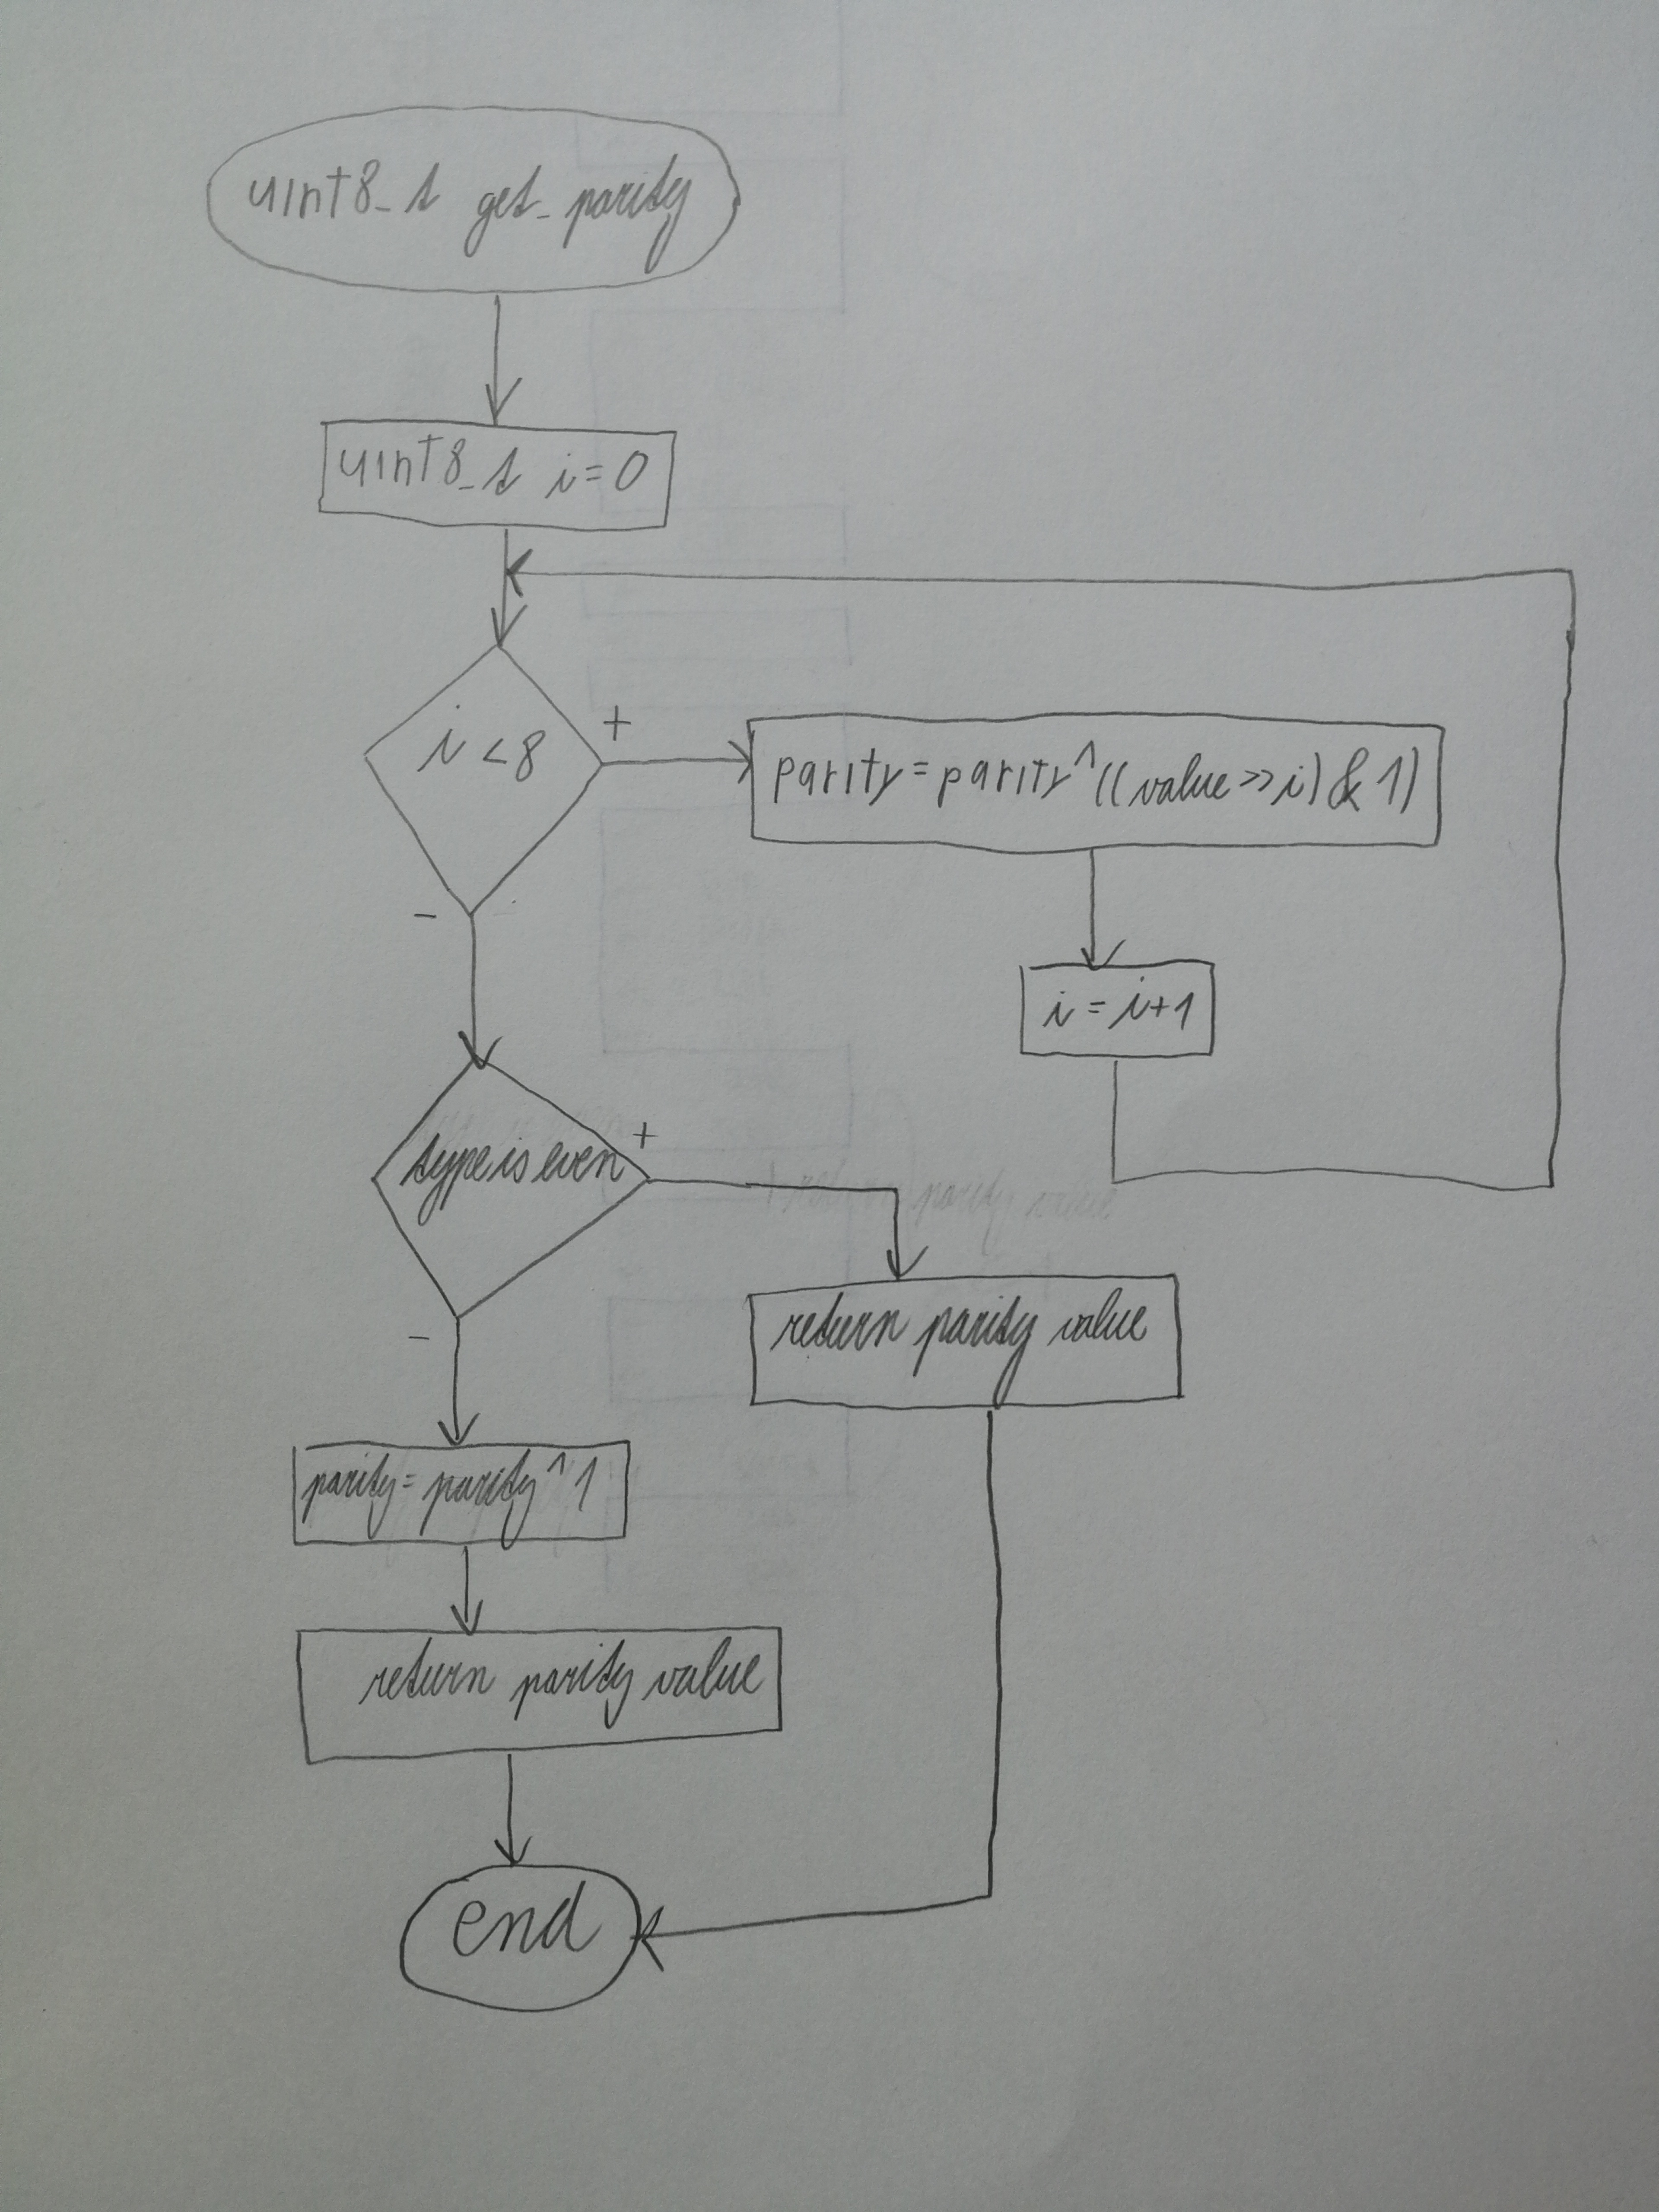 uint8_t get_parity
uint8_t i=0
i<8
+
parity=parity^((value>>i)&1)
-
i=i+1
type is even
+
return parity value
-
parity=parity^1
return parity value
end